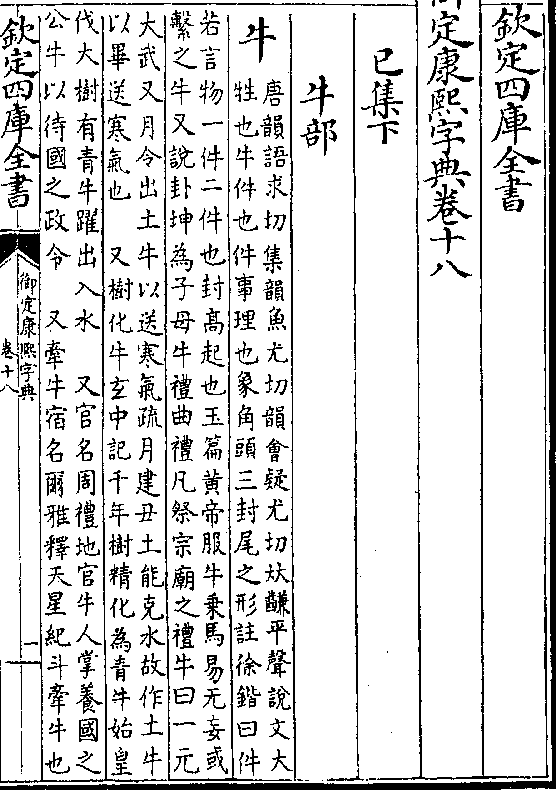 欽定四庫全書
御定康熙字典卷十八
巳集下
牛部
牛
唐韻語求切集韻魚尤切韻會疑尤切𠀤平聲說文大
牲也牛件也件事理也象角頭三封尾之形註徐鍇曰件
若言物一件二件也封高起也玉篇黃帝服牛乗馬易无妄或
繫之牛又說卦坤為子母牛禮曲禮凡祭宗廟之禮牛曰一元
大武又月令出土牛以送寒氣疏月建丑土能克水故作土牛
以畢送寒氣也 又樹化牛𤣥中記千年樹精化為青牛始皇
伐大樹有青牛躍出入水 又官名周禮地官牛人掌養國之
公牛以待國之政令 又牽牛宿名爾雅釋天星紀斗牽牛也
欽定四庫全書
御定康熙字典
卷十八
一